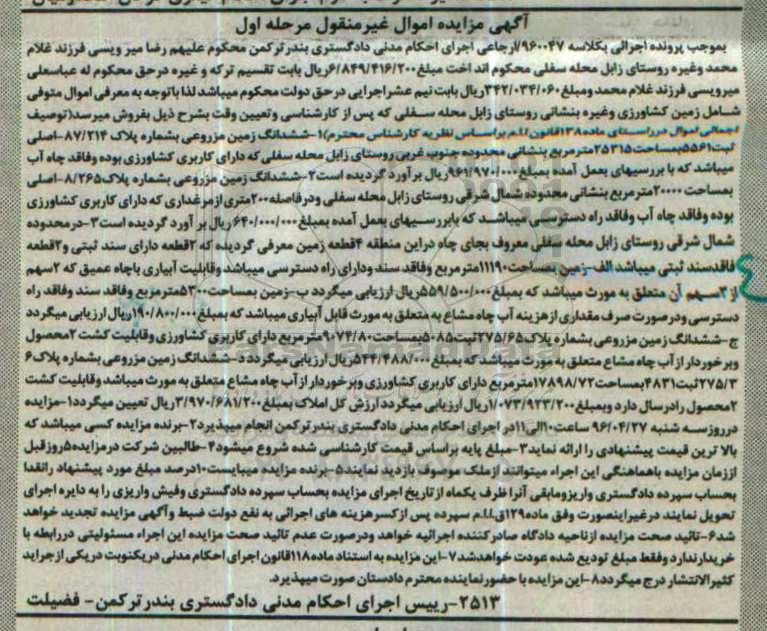 آگهی مزایده اموال غیرمنقول مرحله اول
بموجب پرونده اجرائی بکلاسه ۹۶۰۰۴۷/ارجاعی اجرای احکام مدنی دادگستری بندرترکمن محکوم علیهم رضا میر ویسی فرزند غلام
محمد وغیره روستای زابل محله سفلی محکوم اند اخت مبلغ۶/۸۴۹/۴۱۶/۲۰۰ریال بابت تقسیم ترکه و غیره درحق محکوم له عباسعلی
میرویسی فرزند غلام محمد ومبلغ۳۴۲/۰۳۴/۰۶۰ریال بابت نیم عشراجرایی درحق دولت محکوم میباشد لذا باتوجه به معرفی اموال متوفی
شامل زمین کشاورزی وغیره بنشانی روستای زابل محله سفلی که پس از کارشناسی وتعیین وقت بشرح ذیل بفروش میرسد(توصیف
اجمالی اموال درراستای ماده۱۳۸قانون ا.ا.م براساس نظریه کارشناس محترم)۱-ششدانگ زمین مزروعی بشماره پلاک ۸۷/۲۱۴-اصلی
ثبت۵۵۶۱بمساحت۲۵۳۱۵مترمربع بنشانی محدوده جنوب غربی روستای زابل محله سفلی که دارای کاربری کشاورزی بوده وفاقد چاه آب
میباشد که با بررسیهای بعمل آمده بمبلغ۹۶۱/۹۷۰/۰۰۰ریال برآورد گردیده است۲-ششدانگ زمین مزروعی بشماره پلاک۸/۲۶۵-اصلی
بمساحت ۲۰۰۰۰مترمربع بنشانی محدوده شمال شرقی روستای زابل محله سفلی ودرفاصله۲۰۰متری ازمرغداری که دارای کاربری کشاورزی
بوده وفاقد چاه آب وفاقد راه دسترسی میباشد که بابررسیهای بعمل آمده بمبلغ۶۴۰/۰۰۰/۰۰۰ریال بر آورد گردیده است۳-درمحدوده
شمال شرقی روستای زابل محله سفلی معروف بجای چاه دراین منطقه ۴قطعه زمین معرفی گردیده که ۲قطعه دارای سند ثبتی و۲قطعه
فاقدسند ثبتی میباشد الف-زمین بمساحت۱۱۱۹۰مترمربع وفاقد سند ودارای راه دسترسی میباشد وقابلیت آبیاری باچاه عمیق که ۲سهم
از۳سهم آن متعلق به مورث میباشد که بمبلغ۵۵۹/۵۰۰/۰۰۰ریال ارزیابی میگردد ب-زمین بمساحت۵۳۰۰مترمربع وفاقد سند وفاقد راه
دسترسی ودرصورت صرف مقداری ازهزینه آب چاه مشاع به متعلق به مورث قابل آبیاری میباشد که بمبلغ۱۹۰/۸۰۰/۰۰۰ریال ارزیابی میگردد
ج-ششدانگ زمین مزروعی بشماره پلاک۲۷۵/۶۵ثبت۵۰۸۵بمساحت۹۰۷۴/۸۰مترمربع دارای کاربری کشاورزی وقابلیت کشت ۲محصول
وبرخوردار از آب چاه مشاع متعلق به مورث میباشد که بمبلغ ۵۴۴/۴۸۸/۰۰۰ریال ارزیابی میگردد د-ششدانگ زمین مزروعی بشماره پلاک۶
۲۷۵/۳ثبت۴۸۳۱بمساحت۱۷۸۹۸/۷۲مترمربع دارای کاربری کشاورزی وبرخوردار از آب چاه مشاع متعلق به مورث میباشد وقابلیت کشت
۲محصول رادرسال دارد وبمبلغ۱/۰۷۳/۹۲۳/۲۰۰ریال ارزیابی میگردد ارزش کل املاک بمبلغ۳/۹۷۰/۶۸۱/۲۰۰ریال تعیین میگردد۱-مزایده
درروزسه شنبه ۹۶/۰۴/۲۷ ساعت۱۰الی۱۱در اجرای احکام مدنی دادگستری بندرترکمن انجام میپذیرد۲-برنده مزایده کسی میباشد که
بالا ترین قیمت پیشنهادی را ارائه نماید۳-مبلغ پایه براساس قیمت کارشناسی شده شروع میشود۴-طالبین شرکت درمزایده۵روزقبل
اززمان مزایده باهماهنگی این اجراء میتوانند ازملک موصوف بازدید نمایند۵-برنده مزایده میبایست۱۰درصد مبلغ مورد پیشنهاد رانقدا
بحساب سپرده دادگستری واریزومابقی آنرا ظرف یکماه ازتاریخ اجرای مزایده بحساب سپرده دادگستری وفیش واریزی را به دایره اجرای
تحویل نمایند درغیراینصورت وفق ماده۱۲۹ق.ا.ا.م سپرده پس ازکسرهزینه های اجرائی به نفع دولت ضبط وآگهی مزایده تجدید خواهد
شد۶-تائید صحت مزایده ازناحیه دادگاه صادرکننده اجرائیه خواهد ودرصورت عدم تائید صحت مزایده این اجراء مسئولیتی دررابطه با
خریدارندارد وفقط مبلغ تودیع شده عودت خواهدشد۷-این مزایده به استناد ماده۱۱۸قانون اجرای احکام مدنی دریکنوبت دریکی ازجراید
کثیرالانتشار درج میگردد۸-این مزایده با حضورنماینده محترم دادستان صورت میپذیرد.
۲۵۱۳-رییس اجرای احکام مدنی دادگستری بندرترکمن- فضیلت